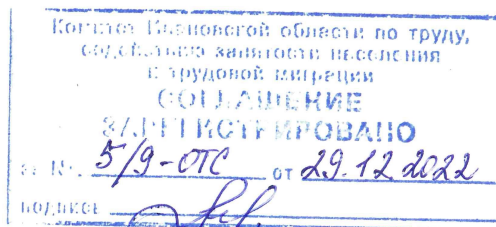 Комитет Ивановской области по труду,
содействию занятости населения
и трудовой миграции
СОГЛАШЕНИЕ
ЗАРЕГИСТРИРОВАНО
за №. 5/9-ОТС от 29.12.2022
подпись